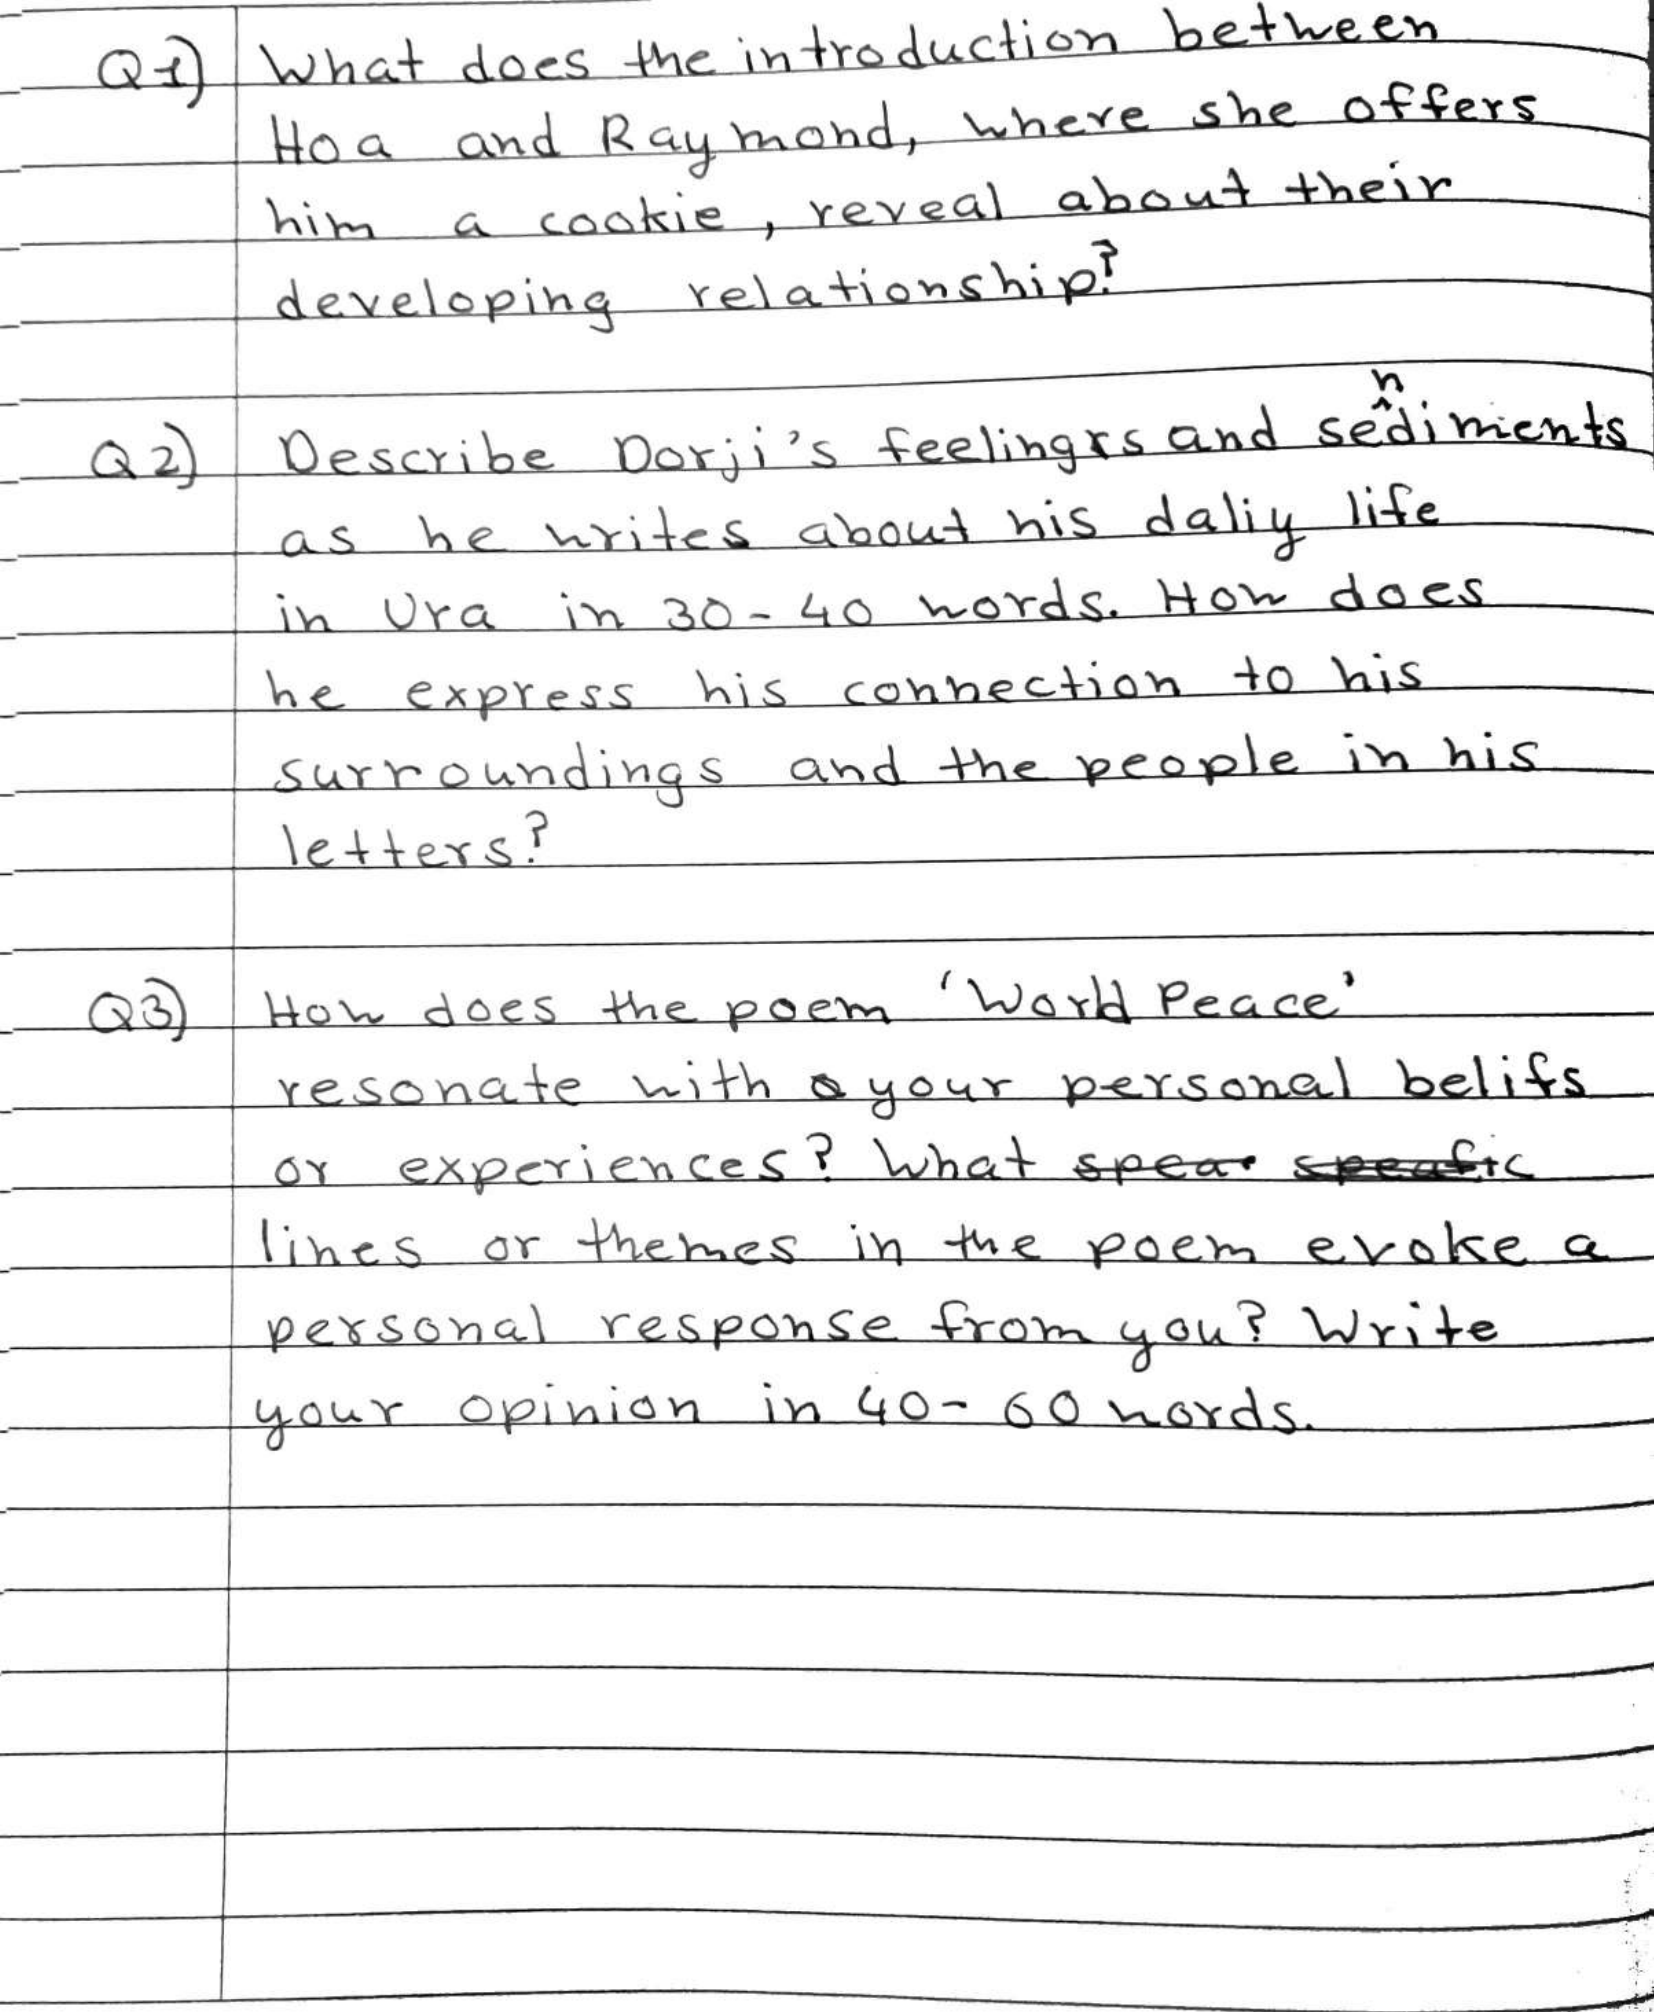 Q1) What does the introduction between
Hoa and Raymond, where she offers
him a cookie, reveal about their
developing relationship?
Q2) Describe Dorji's feelings and sendiments
as he writes about his daliy life
in Ura in 30-40 words. How does
he express his connection to his
surroundings and the people in his
letters?
Q3) How does the poem 'World Peace'
resonate with your personal belifs
or experiences? What
lines or themes in the poem evoke a
personal response from you? Write
your opinion in 40-60 words.